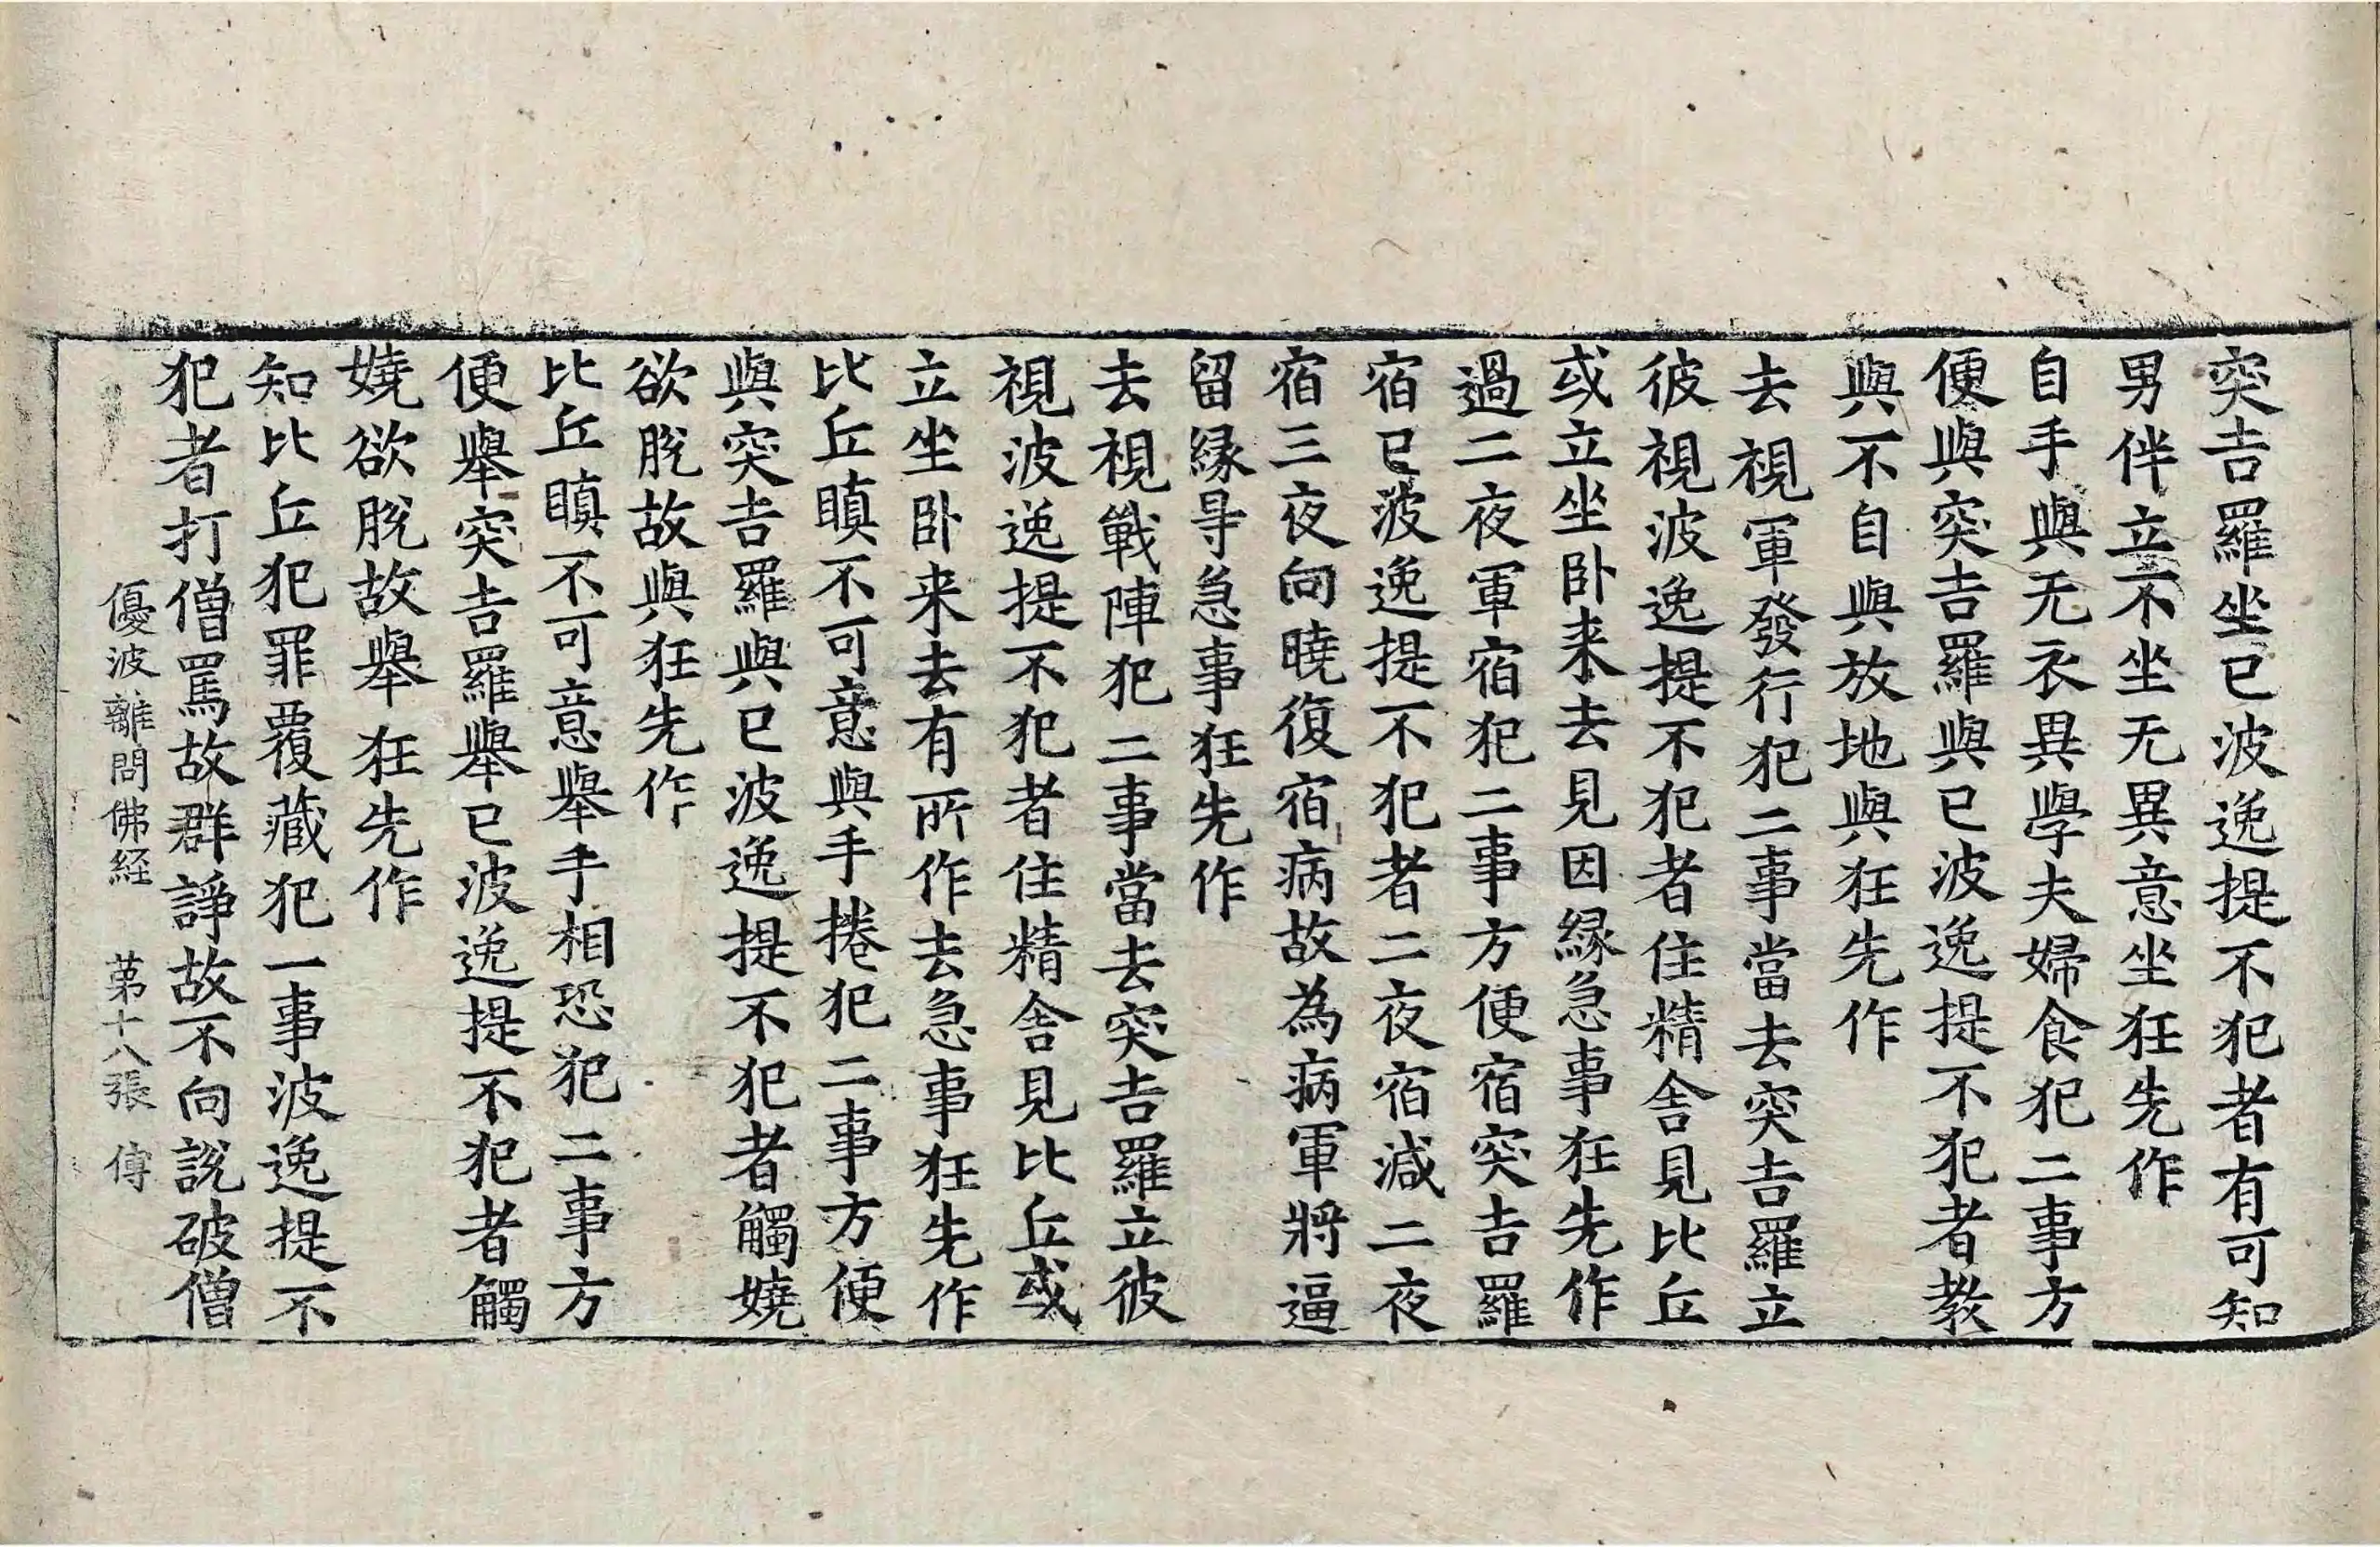 突吉羅坐已波逸提不犯者有可知
男伴立不坐无異意坐狂先作
自手與无衣異學夫婦食犯二事方
便與突吉羅與已波逸提不犯者教
與不自與放地與狂先作
去視軍發行犯二事當去突吉羅立
彼視波逸提不犯者住精舍見比丘
或立坐卧来去見因縁急事狂先作
過二夜軍宿犯二事方便宿突吉羅
宿已波逸提不犯者二夜宿減二夜
宿三夜向曉復宿病故為病軍將逼
留縁㝵急事狂先作
去視戰陣犯二事當去突吉羅立彼
視波逸提不犯者住精舍見比丘或
立坐卧来去有所作去急事狂先作
比丘瞋不可意與手捲犯二事方便
與突吉羅與已波逸提不犯者觸嬈
欲脫故與狂先作
比丘瞋不可意舉手相恐犯二事方
便舉突吉羅舉已波逸提不犯者觸
嬈欲脫故舉狂先作
知比丘犯罪覆藏犯一事波逸提不
犯者打僧罵故群諍故不向說破僧
優波離問佛経 第十八張 傳